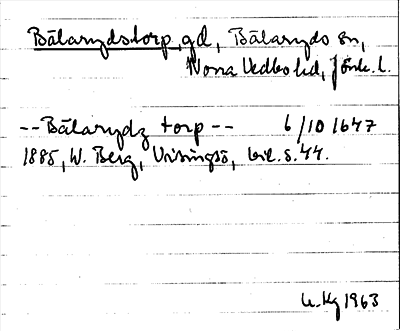 Bälarydstorp, gd, Bälaryds sn,
Norra Vedbo hd, Jönk. l.
--Bälarydz torp-- 6/10 1647
1885, W. Berg, Visingsö, bil. s. 44.
1963